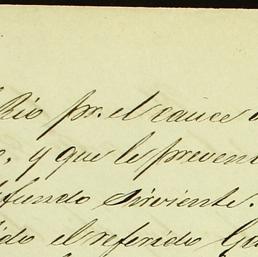 Rio pr. el cauce
, y que le preven
fundo sirviente.
ido el referido Go